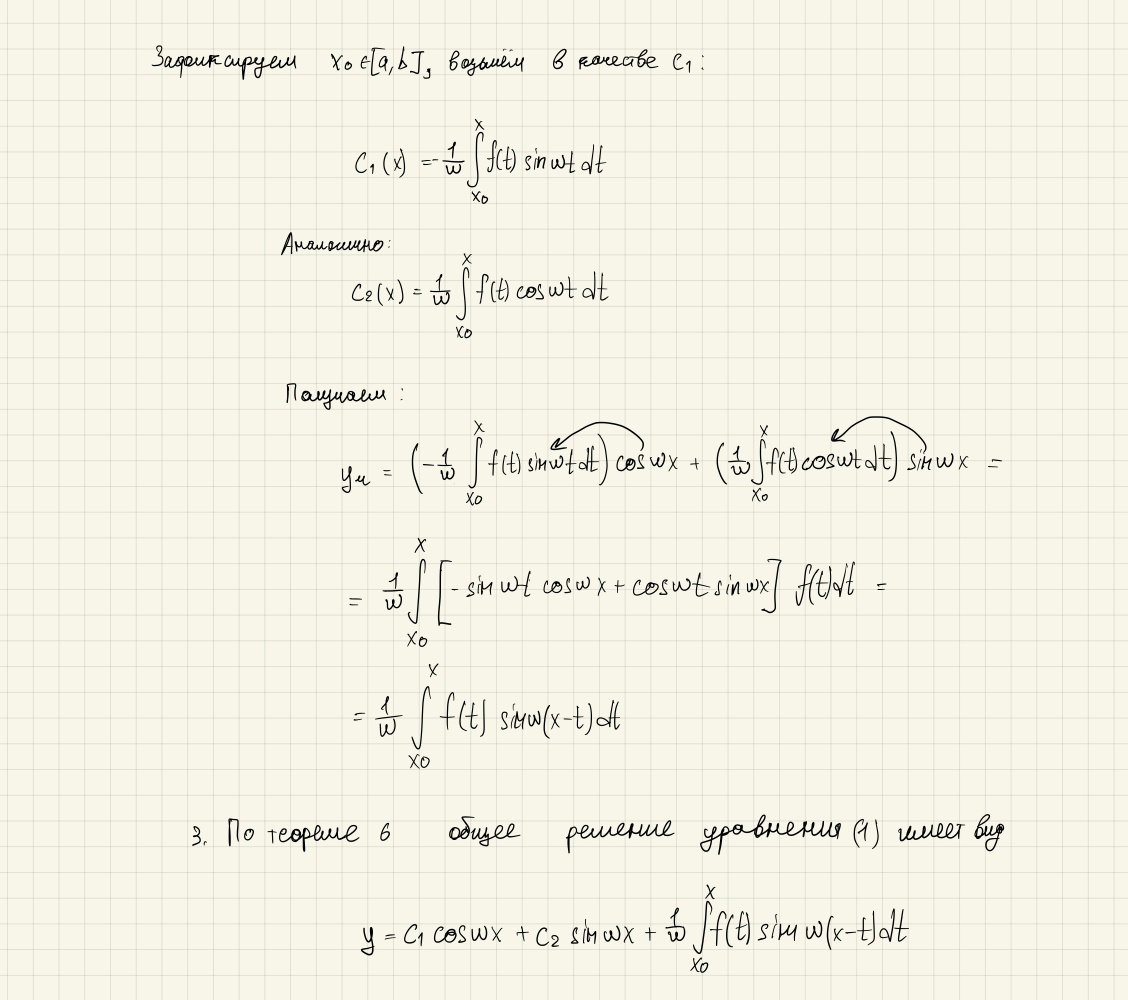 Зафиксируем x₀ ∈ [a, b], возьмём в качестве C₁:
C₁(x) = -1/ω ∫_{x₀}^{x} f(t) sin ωt dt
Аналогично:
C₂(x) = 1/ω ∫_{x₀}^{x} f(t) cos ωt dt
Получаем:
yч = (-1/ω ∫_{x₀}^{x} f(t) sin ωt dt) cos ωx + (1/ω ∫_{x₀}^{x} f(t) cos ωt dt) sin ωx =
= 1/ω ∫_{x₀}^{x} [- sin ωt cos ωx + cos ωt sin ωx] f(t) dt =
= 1/ω ∫_{x₀}^{x} f(t) sin ω(x-t) dt
3. По теореме 6 общее решение уравнения (1) имеет вид
y = C₁ cos ωx + C₂ sin ωx + 1/ω ∫_{x₀}^{x} f(t) sin ω(x-t) dt